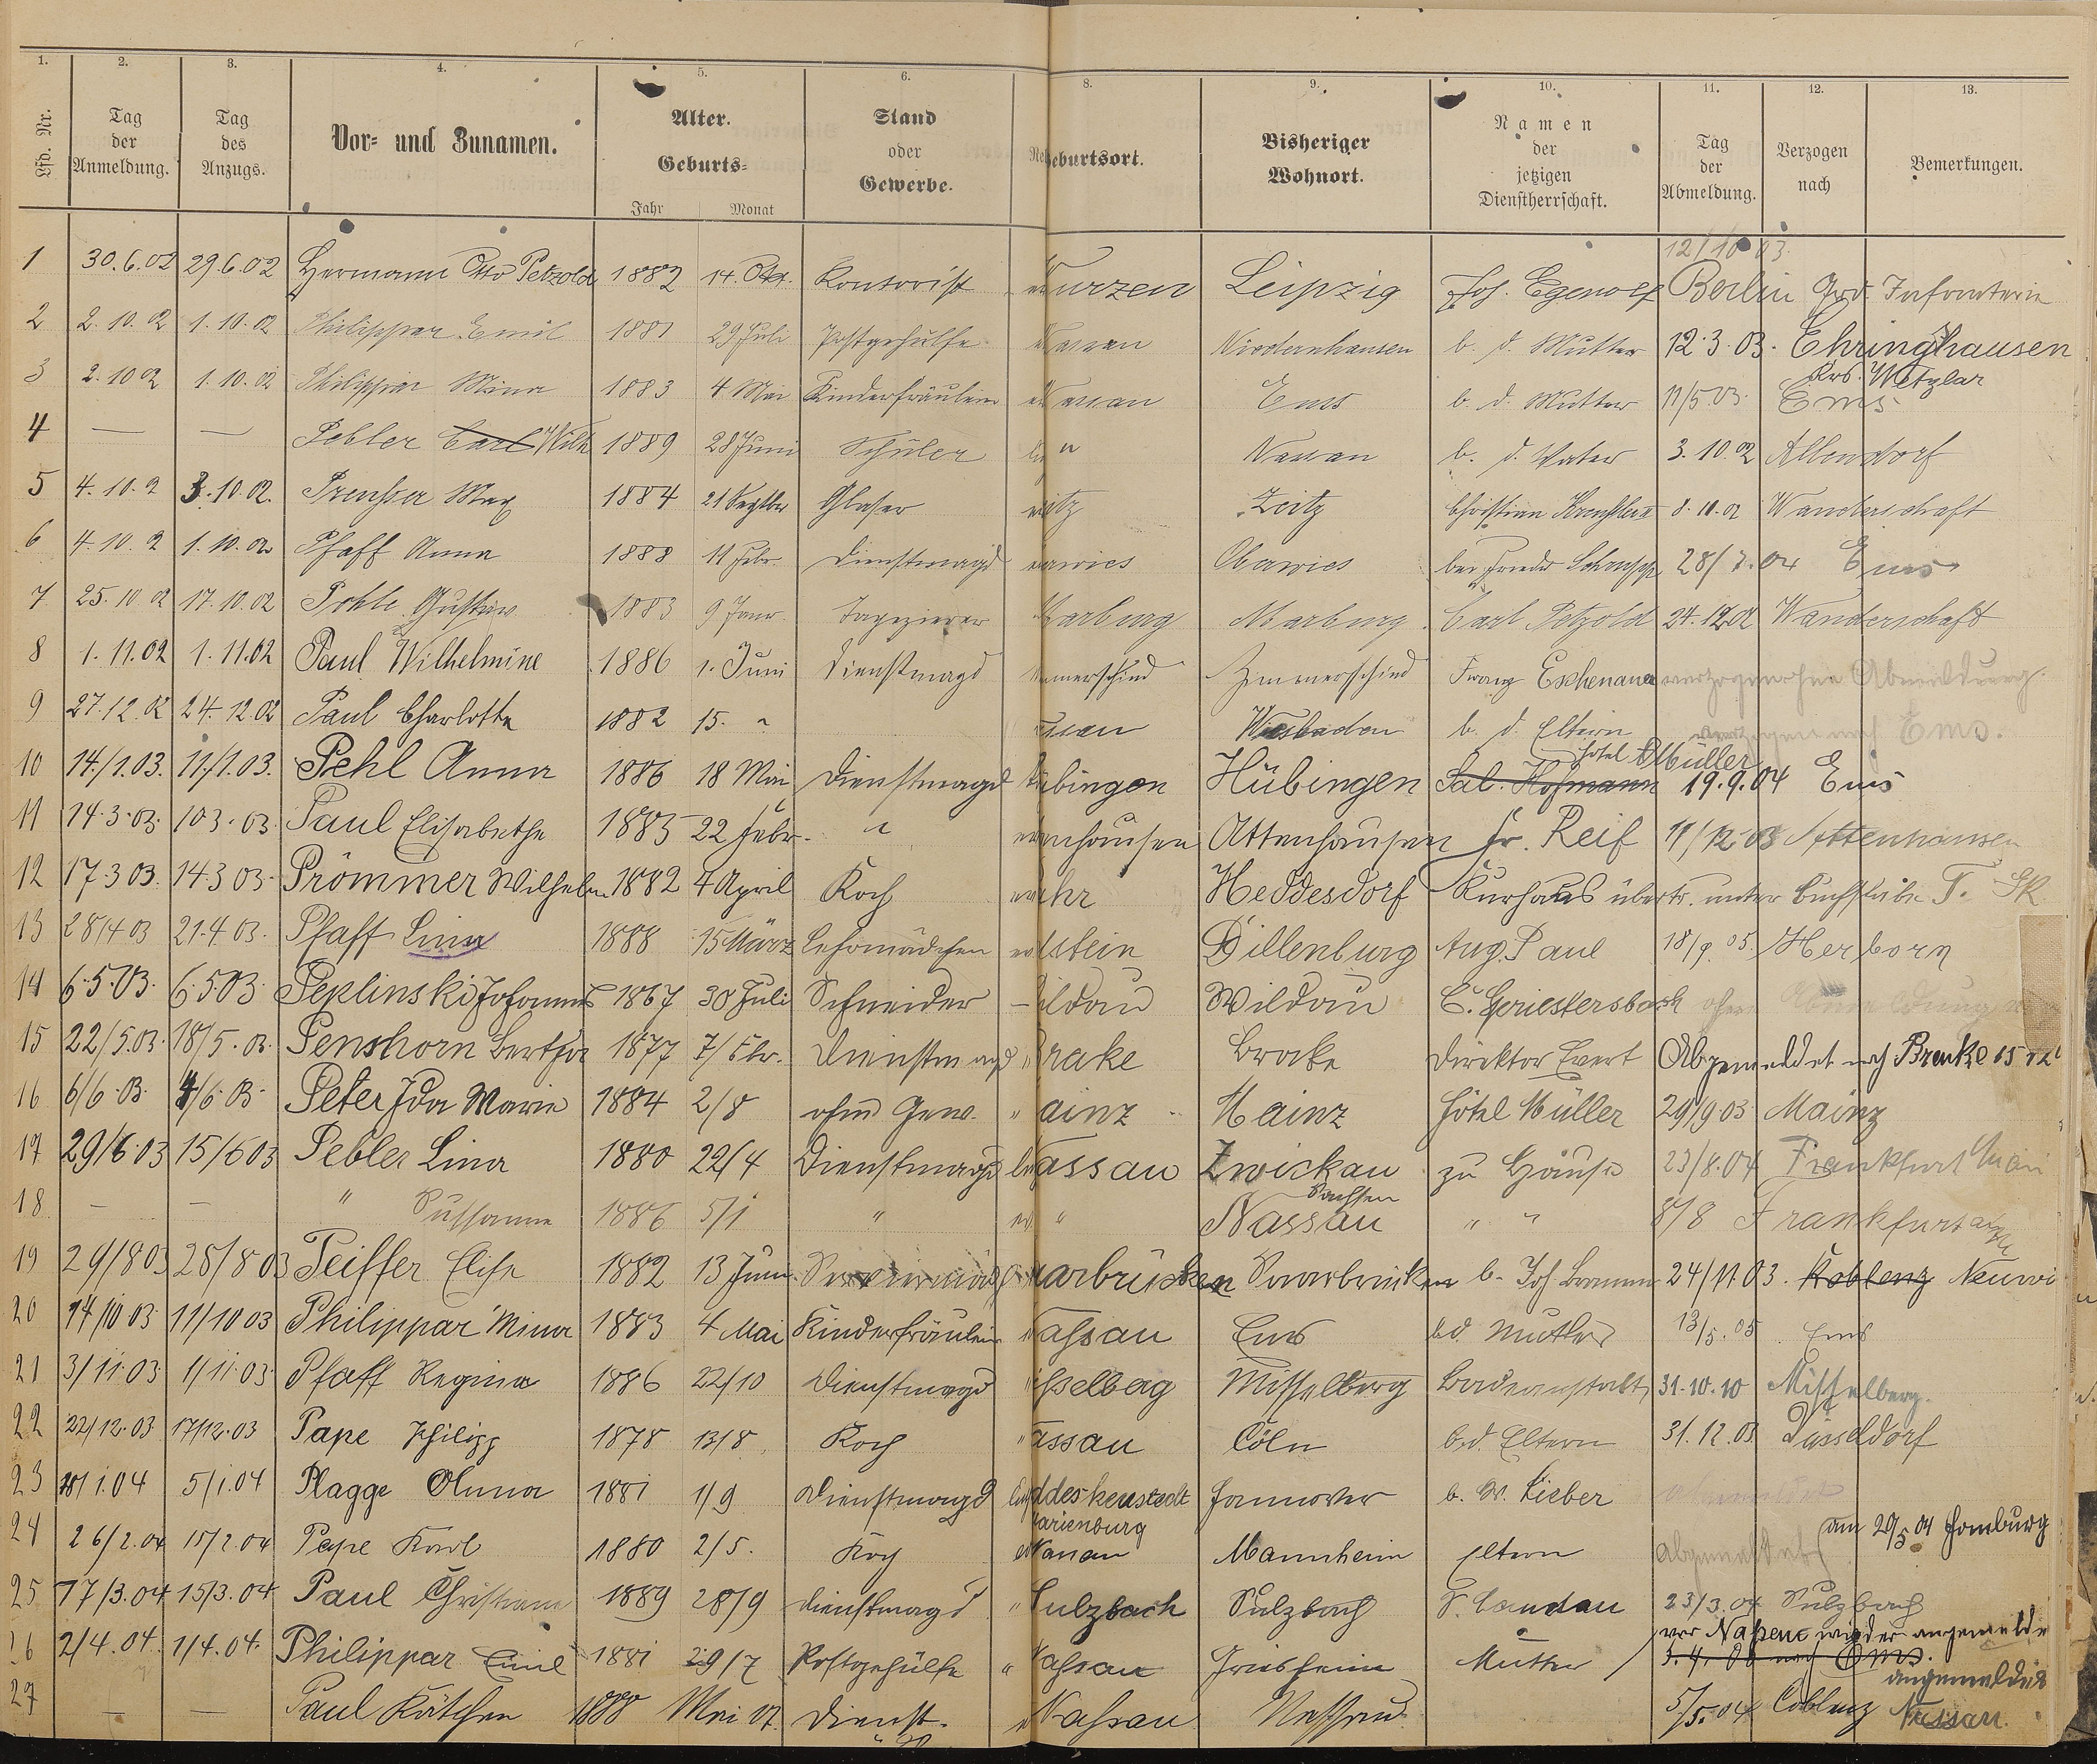 1. 2. 3. 4. 5. 6. 8. 9. 10. 11. 12. 13.
Lfd. Nr. Tag der Anmeldung. Tag des Anzugs. Vor- und Zunamen. Alter. Geburts- Jahr Monat Stand oder Gewerbe. Geburtsort. Bisheriger Wohnort. Namen der jetzigen Dienstherrschaft. Tag der Abmeldung. Verzogen nach Bemerkungen.
12/10 03.
1 30.6.02 29.6.02 Hermann Otto Petzold 1882 14. Okt. Kontorist Wurzen Leipzig Joh. Egenolf Berlin Grd. Infanterie
2 2.10.02 1.10.02 Philippar Emil 1881 29 Juli Postgehülfe Nassau Niedernhausen b. d. Mutter 12.3.03. Ehringshausen
Krs. Wetzlar
3 2.10 02 1.10.02 Philippar Mina 1883 4 Mai Kinderfräulein Nassau Ems b. d. Mutter 11/5.03. Ems
4 — — Pebler Carl Wilh 1889 28 Juni Schüler " Nassau b. d. Vater 3.10.02 Allendorf
5 4.10.2 3.10.02. Max 1884 21 Septbr Glaser Zeitz Christian 8.11.02 Wanderschaft
6 4.10.2 1.10.02 Pfaff Anna 1888 11 Febr. Dienstmagd Oberwies bei 28/ .04 Ems
7 25.10 02 17.10.02 Gustav 1883 9 Janr. Tapezierer Marburg Marburg Carl Petzold 24.12.02 Wanderschaft
8 1.11.02 1.11.02 Paul Wilhelmine 1886 1. Juni Dienstmagd Zimmerschied Franz Eschenauer verzogen ohne Abmeldung.
9 27.12.02 24.12.02 Paul Charlotte 1882 15. " Nassau Wiesbaden b. d. Eltern verzogen nach Ems.
Hotel Müller
10 14./1.03. 11./1.03. Pehl Anna 1886 18 Mai Dienstmagd Hübingen Hübingen Sal. Hofmann 19.9.04 Ems
11 14.3.03. 10 3.03. Paul Elisabethe 1885 22 Febr. " Attenhausen Fr. Reif 11/12 03 Attenhausen
12 17.3 03. 14.3 03. Prömmer Wilhelm 1882 4 April Koch Heddesdorf Kurhaus übertr. unter Buchstabe T.
13 28/4 03 21.4 03. Pfaff Lina 1888 15 März Lehrmädchen Dillenburg Aug. Paul 18/9.05. Herborn
14 6.5.03. 6.5 03 Peplinski Johannes 1867 30 Juli Schneider Wildau C. Geriestersbach ohne Abmeldung
15 22/5.03. 18/5.03. Penshorn Bertha 1877 7/ Fbr. Dienstmagd Brake Brake Direktor Evert Abgemeldet nach Brake
16 6/6.03. 4/6.03. Peter Ida Marie 1884 2/8 ohne Gew. " Mainz Mainz Hôtel Müller 29/9 03 Mainz
17 29/6.03 15/6 03 Pebler Lina 1880 22/4 Dienstmagd Nassau Zwickau zu Hause 23/8.04 Frankfurt Main
Sachsen
18 — — " Sussanna 1886 5/1 " " Nassau " " 8/8 Frankfurt a/M
19 29/8 03 28/8 03 Peiffer Elise 1882 13 Juni Saarbrücken Saarbrücken b. Joh 24/11 03. Koblenz Neuwi
20 14/10 03 11/10 03 Philippar Mina 1883 4 Mai Kinderfräulein Nassau Ems b. d. Mutter 13/5.05 Ems
21 3/11.03 1/11.03. Pfaff Regina 1886 22/10 Dienstmagd Misselberg Misselberg Badeanstalt 31.10.10 Misselberg.
22 22/12.03. 17/12.03 Pape Philipp 1878 13/8 Koch Nassau Cöln b. d. Eltern 31.12.03 Düsseldorf
23 1.04 5/1.04 Plagge Anna 1881 1/9 Dienstmagd Hannover b. W. Lieber
Marienburg
am 20/5 04 Homburg
24 26/2.04 15/2.04 Pape Karl 1880 2/5. Koch Nassau Mannheim Eltern abgemeldet
25 17/3.04 15/3.04 Paul Christiane 1889 28/9 Dienstmagd " Sulzbach Sulzbach S. Landau 23/3.04 Sulzbach
von Nassau wieder angemeldet
26 2/4.04. 1/4.04. Philippar Emil 1881 29/7 Postgehülfe " Nassau Griesheim Mutter nach Ems.
angemeldet
27 — — Paul Kätchen 1888 Mai 07. Dienst. Nassau Nassau 5/5.04 Coblenz Nassau.